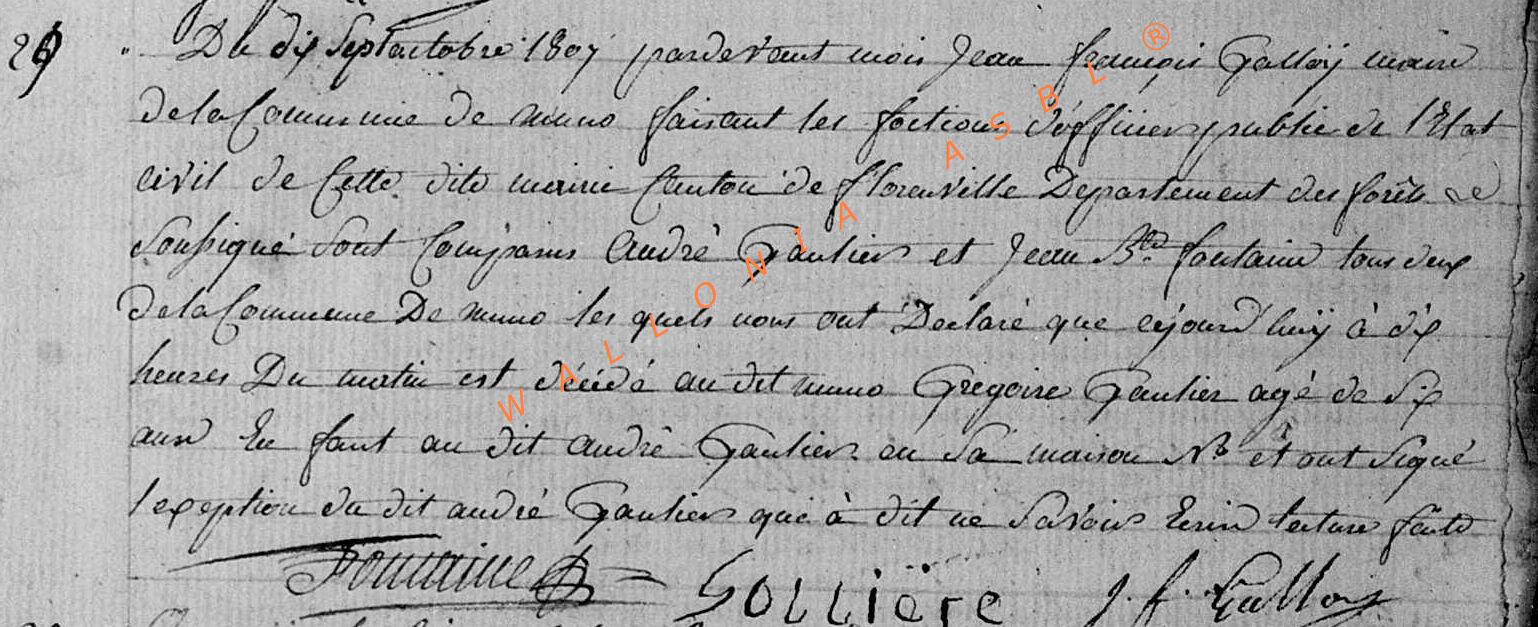 29
Du dix Sept octobre 1807 pardevant mois Jean françois Galloÿ maire
de la Commune de muno faisant les foctions d'officier public de l'Etat
civil de Cette dite mairie Canton de florenville Departement des forêts
Soussigné Sont Comparus André Gautier et Jean Bte fontaine tous deux
de la Commune De muno les quels nous ont Declaré que cejourd'huÿ à dix
heures Du matin est décédé au dit muno Gregoire Gautier agé de Six
ans En fant au dit andré Gautier en Sa maison No et ont Signé
l'exeption du dit andré Gautier qui à dit ne Savoir Ecrire lecture faite
fontaine Sollïere J. f. Galloy
WALLONIA ASBL ®